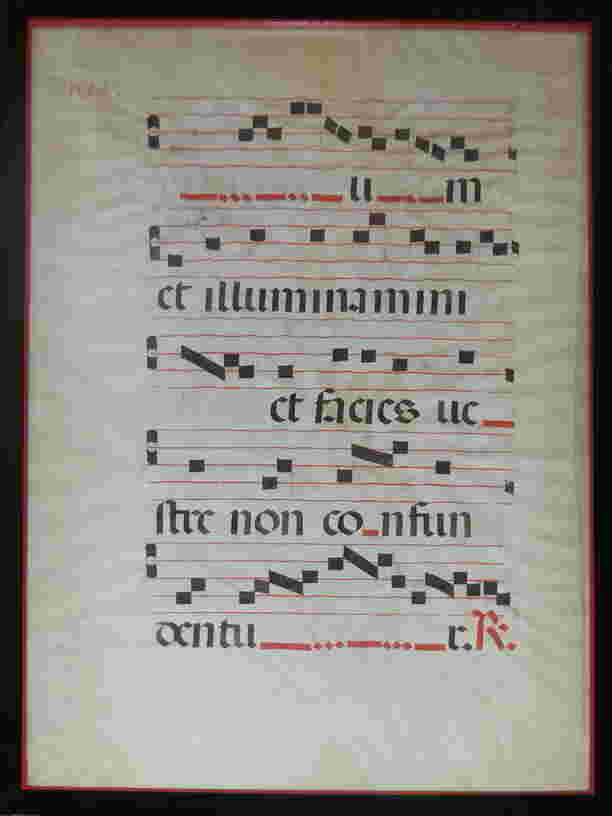 u m
et illuminamini
et facies ue
stre non co nfun
dentu r. R.